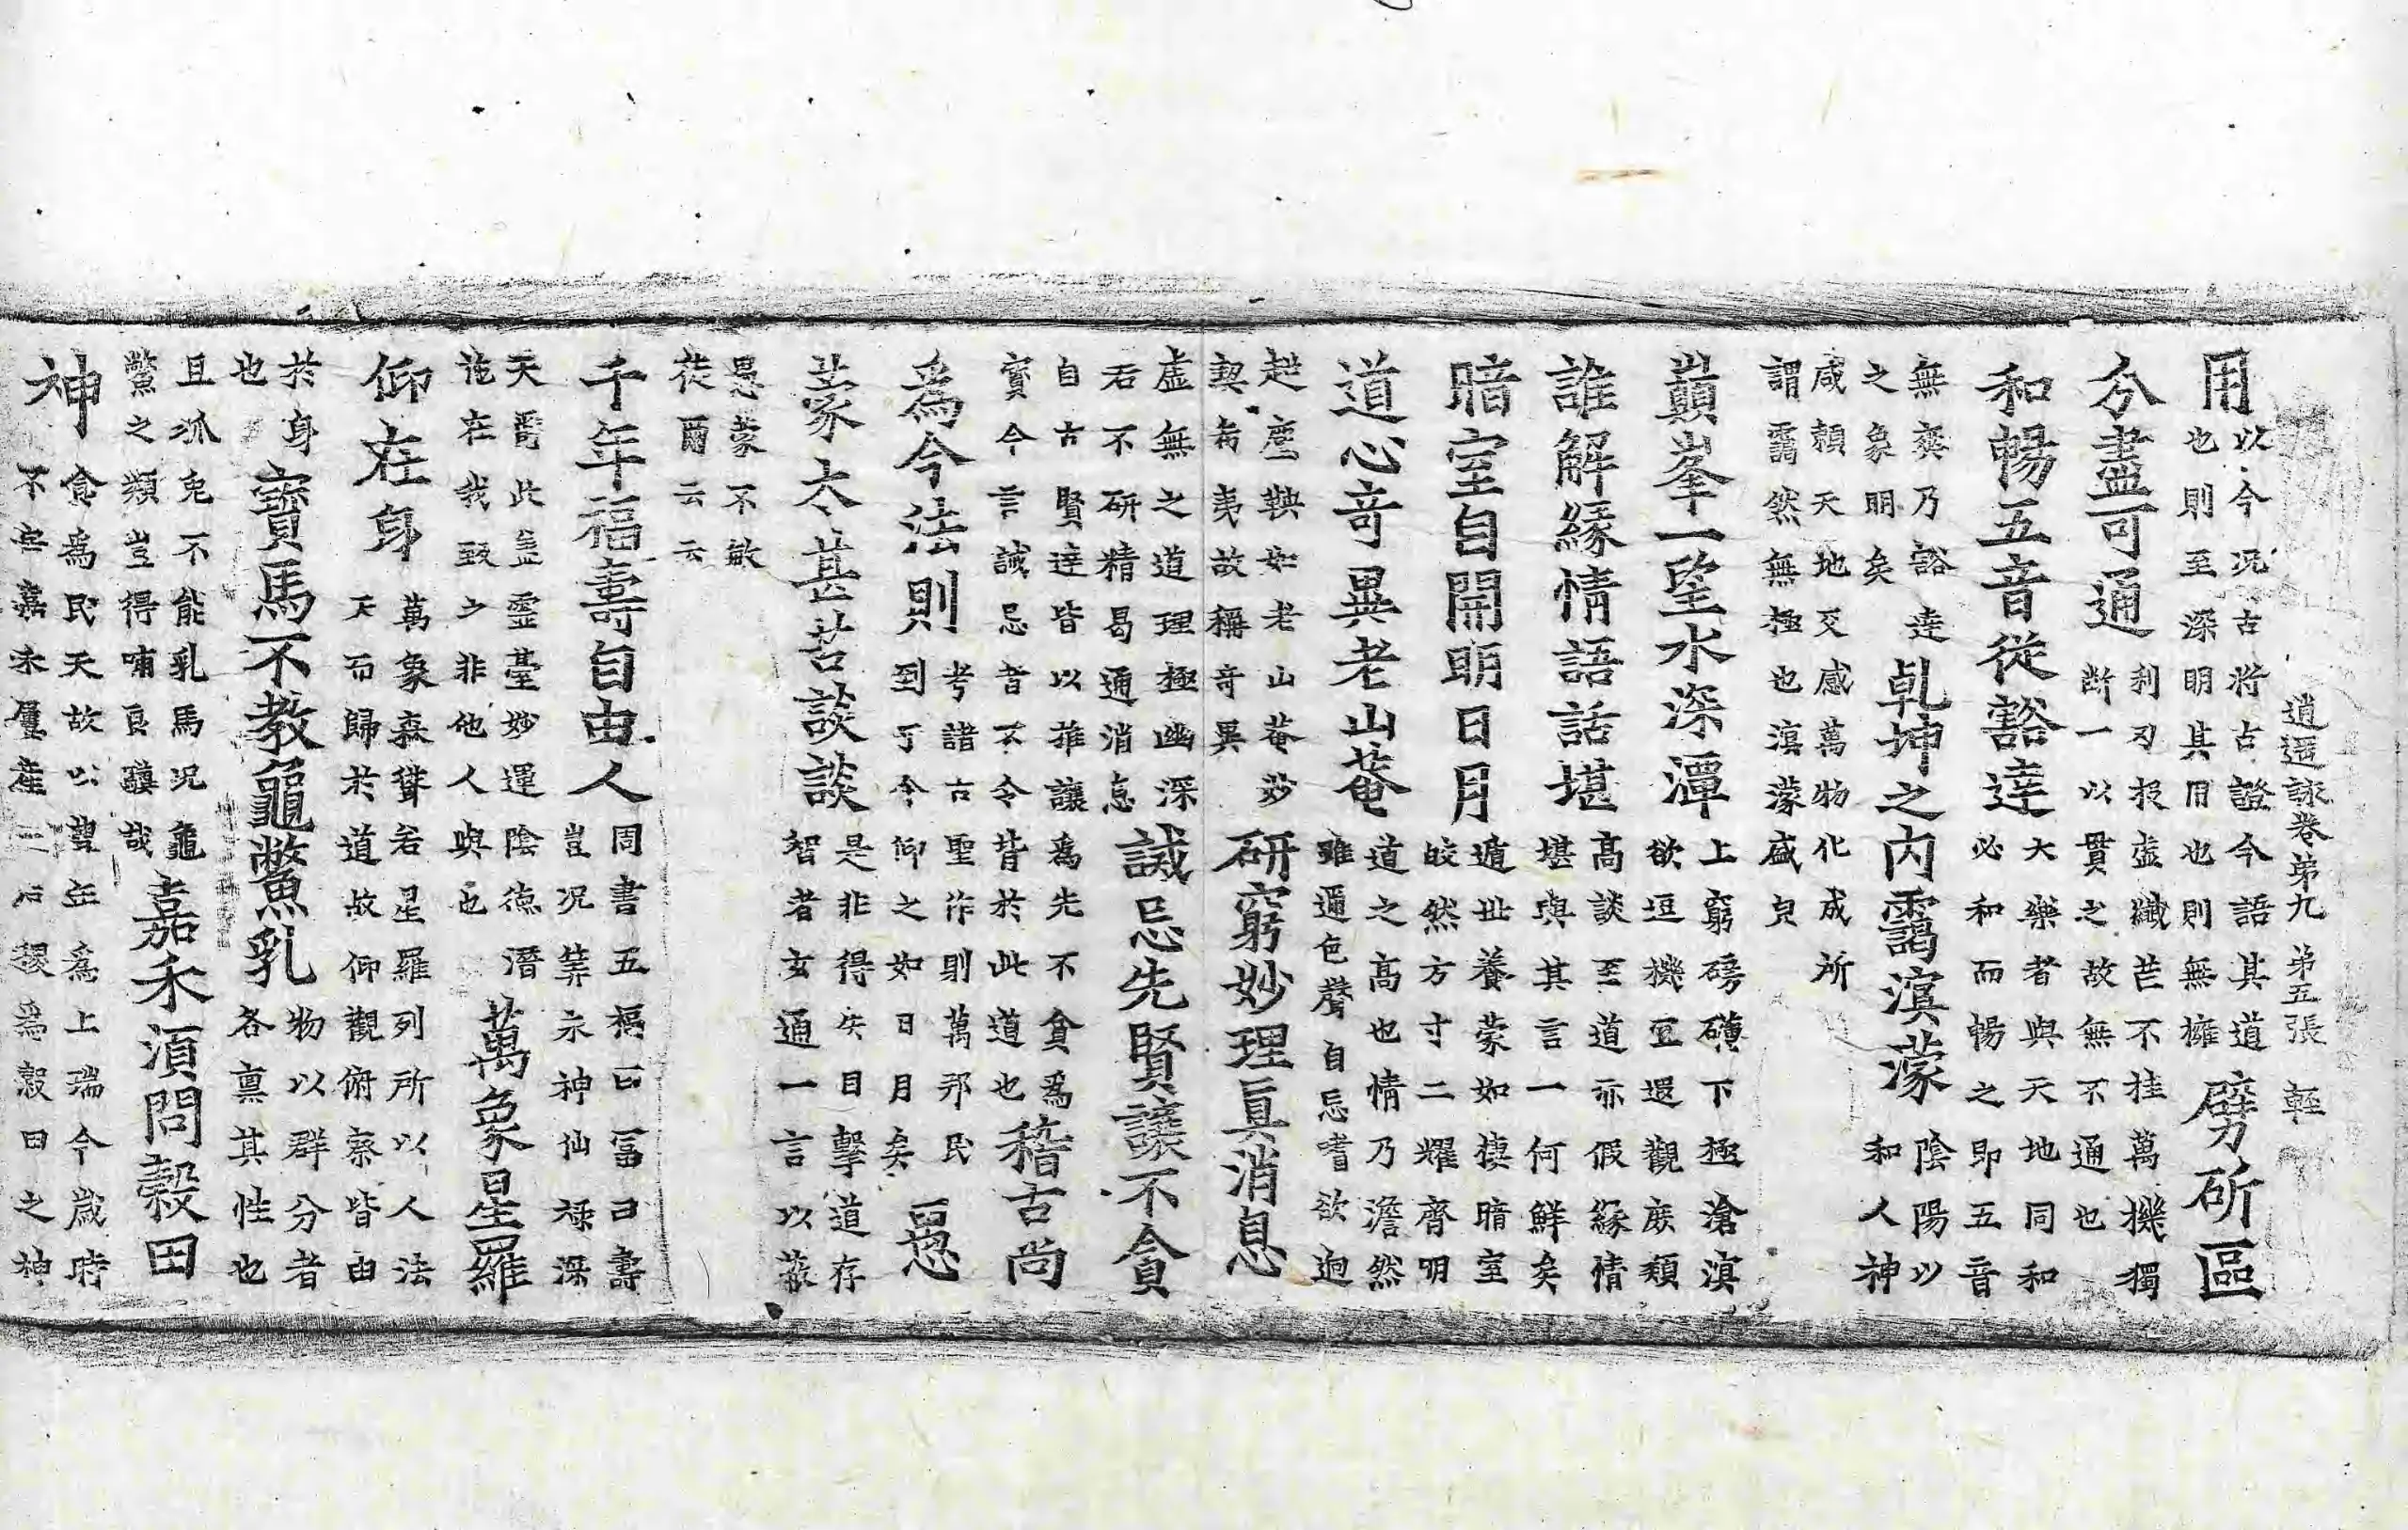 逍遥詠卷第九 第五張 輕
用以今況古將古證今語其道也則至深明其用也則無擁劈斫區
分盡可通利刃投虛纖芒不挂萬機獨断一以貫之故無不通也
和暢五音從豁達大樂者與天地同和必和而暢之即五音
無爽乃豁達之象明矣乹坤之内靄溟濛陰陽以和人神
咸頼天地交感萬物化成所謂靄然無極也溟濛盛皃
巔峯一望水深潭上窮磅礴下極滄溟欲垣機宜還觀庻類
誰解緣情語話堪高談至道亦假緣情堪與其言一何鮮矣
暗室自開明日月遁世養蒙如棲暗室皎然方寸二耀齊明
道心奇異老山菴道之高也情乃澹然雖邇色聲自忘嗜欲逈
超塵鞅如老山菴妙契希夷故稱奇異研窮妙理真消息
虛無之道理極幽深若不研精曷通消息誡忌先賢讓不貪
自古賢達皆以推讓爲先不貪爲寶今言誡忌者不令皆於此道也稽古尚
爲今法則考諸古聖作則萬邦民到于今仰之如日月矣愚
蒙太甚苦談談是非得失目擊道存智者玄通一言以蔽
愚蒙不敏徒爾云云
千年福壽自由人周書五福曰冨曰壽豈況筭永神仙禄深
天爵此盖靈臺妙運陰德潛施在我致之非他人與也萬象星羅
仰在身萬象森聳若星羅列所以人法天而歸於道故仰觀俯察皆由
於身也寶馬不教龜鱉乳物以群分者各禀其性也
且狐兔不能乳馬況龜鱉之類豈得哺良驥哉嘉禾湏問穀田
神食爲民天故以豐年爲上瑞今歲時不害嘉禾屢產三后稷爲穀田之神